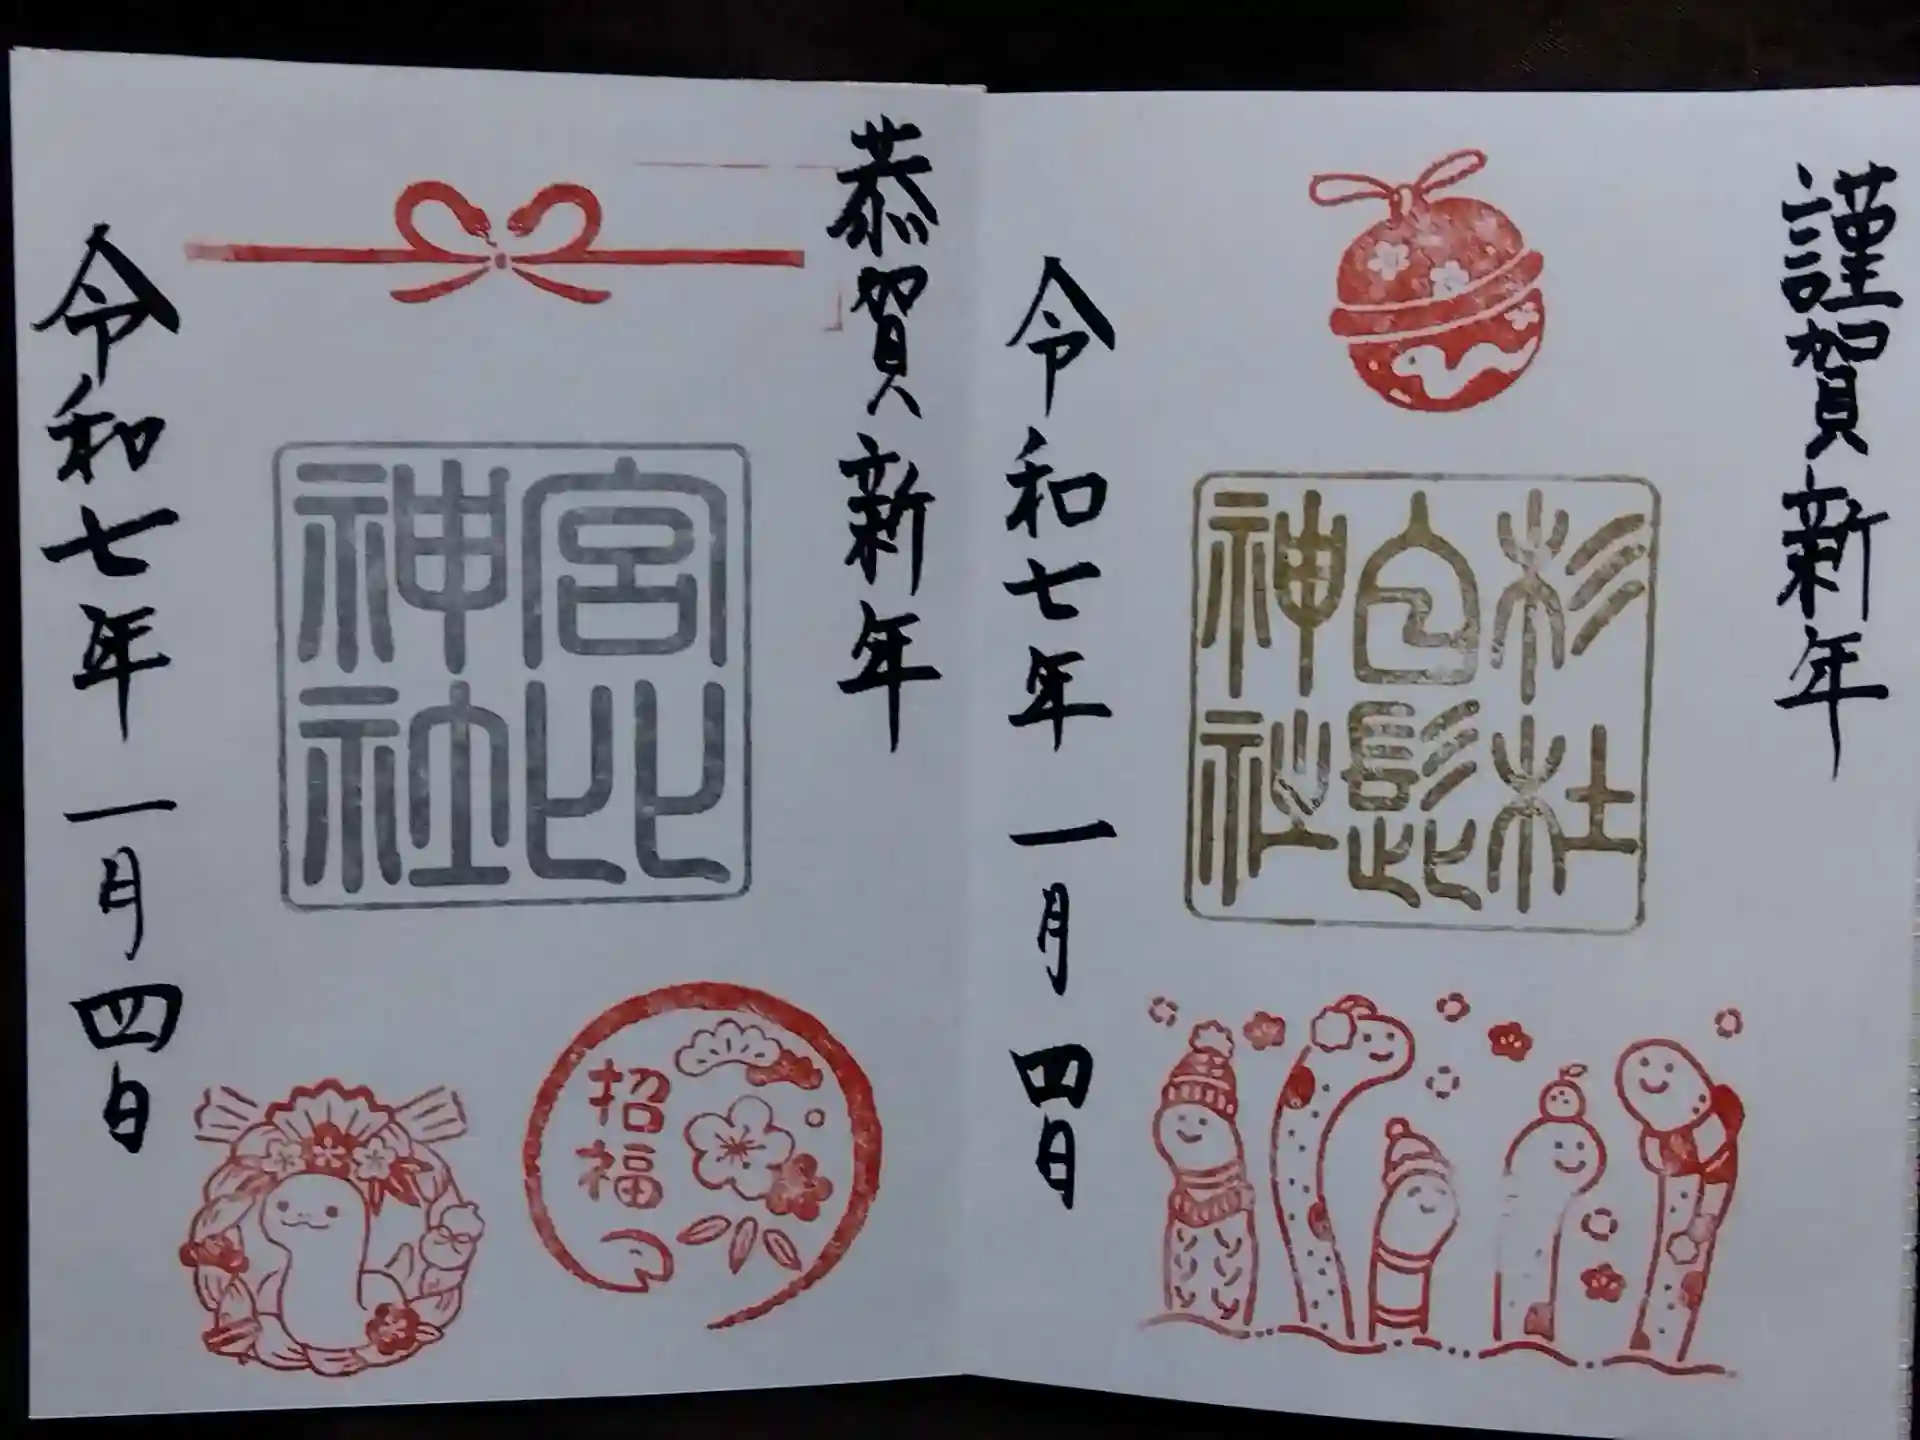 謹賀新年
杉杜
白髭
神社
令和七年一月四日
恭賀新年
宮比
神社
招福
令和七年一月四日